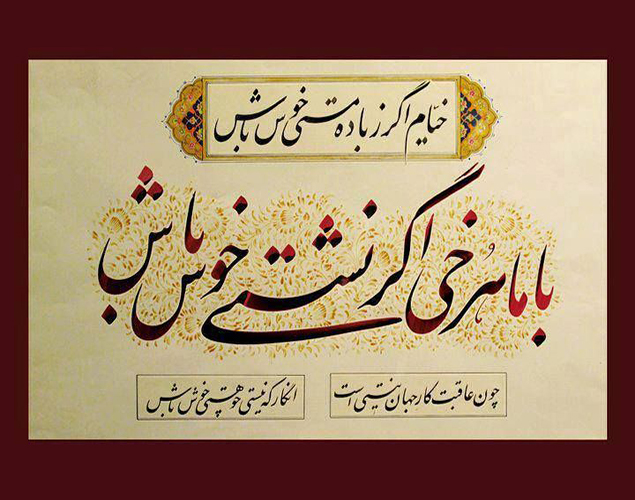 خیّام اگر ز باده مستی خوش باش
با ماهرخی اگر نشستی خوش باش
چون عاقبت کار جهان نیستی است
انگار که نیستی چو هستی خوش باش